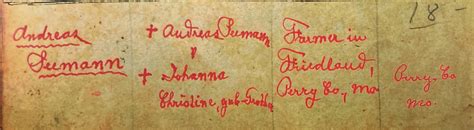 18-
Andreas
Seemann
+ Andreas Seemann
y
+ Johanna
Christine, geb.
Farmer in
Friedland,
Perry Co., Mo
Perry, Co
Mo.